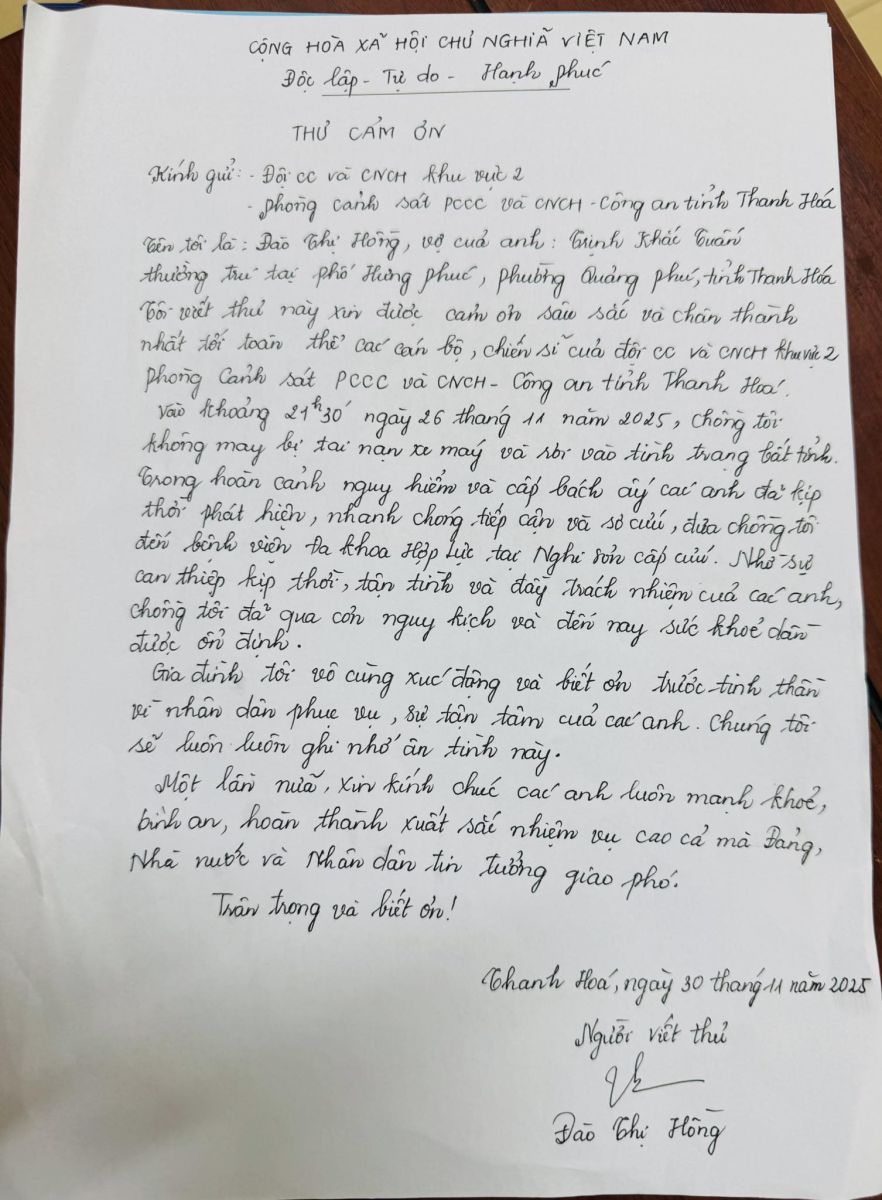 CỘNG HÒA XÃ HỘI CHỦ NGHĨA VIỆT NAM
Độc lập - Tự do - Hạnh phúc
THƯ CẢM ƠN
Kính gửi: - Đội CC và CNCH khu vực 2
- Phòng cảnh sát PCCC và CNCH - Công an tỉnh Thanh Hoá
Tên tôi là: Đào Thị Hồng, vợ của anh: Trịnh Khắc Tuấn
thường trú tại phố Hưng Phúc, phường Quảng Phú, tỉnh Thanh Hóa
Tôi viết thư này xin được cảm ơn sâu sắc và chân thành
nhất tới toàn thể các cán bộ, chiến sĩ của đội CC và CNCH khu vực 2
phòng Cảnh sát PCCC và CNCH - Công an tỉnh Thanh Hoá.
Vào khoảng 21h30' ngày 26 tháng 11 năm 2025, chồng tôi
không may bị tai nạn xe máy và rơi vào tình trạng bất tỉnh.
Trong hoàn cảnh nguy hiểm và cấp bách ấy các anh đã kịp
thời phát hiện, nhanh chóng tiếp cận và sơ cứu, đưa chồng tôi
đến bệnh viện Đa khoa Hợp Lực tại Nghi Sơn cấp cứu. Nhờ sự
can thiệp kịp thời, tận tình và đầy trách nhiệm của các anh,
chồng tôi đã qua cơn nguy kịch và đến nay sức khoẻ dần
được ổn định.
Gia đình tôi vô cùng xúc động và biết ơn trước tinh thần
vì nhân dân phục vụ, sự tận tâm của các anh. Chúng tôi
sẽ luôn luôn ghi nhớ ân tình này.
Một lần nữa, xin kính chúc các anh luôn mạnh khoẻ,
bình an, hoàn thành xuất sắc nhiệm vụ cao cả mà Đảng,
Nhà nước và Nhân dân tin tưởng giao phó.
Trân trọng và biết ơn!
Thanh Hoá, ngày 30 tháng 11 năm 2025
Người viết thư
Đào Thị Hồng